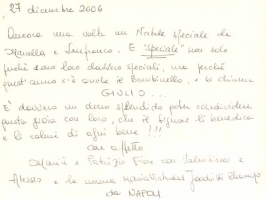 27 dicembre 2006
Ancora una volta un Natale speciale da
Marella e Gianfranco. E "speciale" non solo
perché sono loro davvero speciali, ma perché
quest'anno c'è anche il Bambinello, e si chiama
GIULIO...
E' davvero un dono splendido poter condividere
questa gioia con loro, che il Signore li benedica
e li colmi di ogni bene!!!
con affetto
Maria e Patrizio Fiore con Valentina e
Alessio e la nonna
da NAPOLI